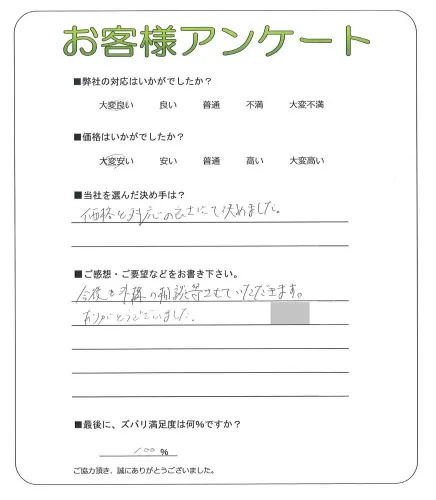 お客様アンケート
■弊社の対応はいかがでしたか？
大変良い 良い 普通 不満 大変不満
■価格はいかがでしたか？
大変安い 安い 普通 高い 大変高い
■当社を選んだ決め手は？
価格と対応の良さにて決めました。
■ご感想・ご要望などをお書き下さい。
今後も外構の相談等させていただきます。
ありがとうございました。
■最後に、ズバリ満足度は何%ですか？
100 %
ご協力頂き、誠にありがとうございました。